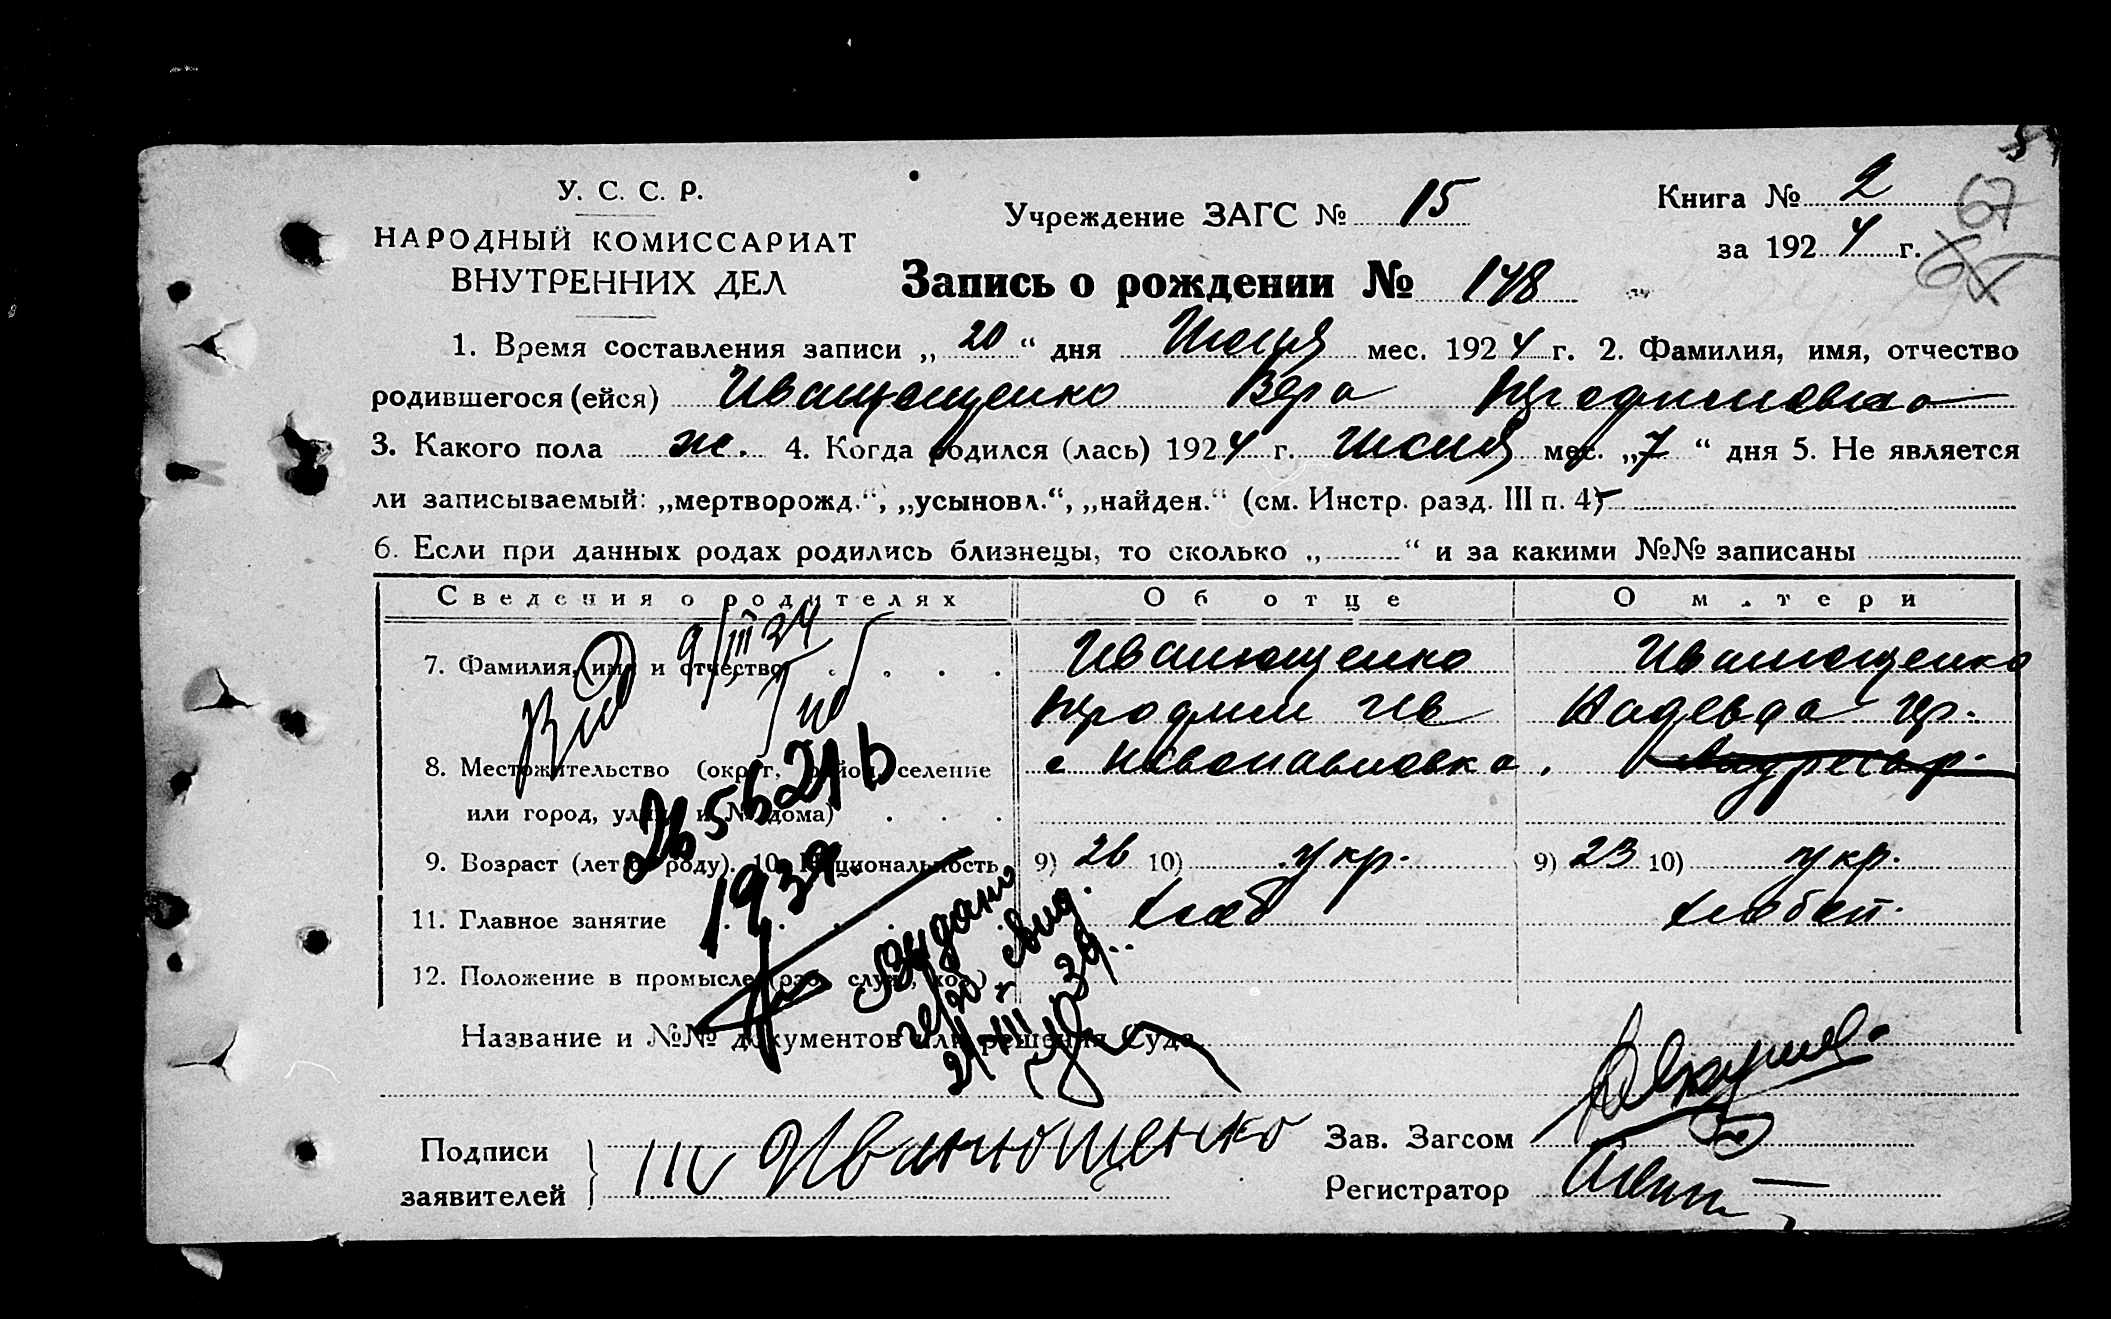 У. С. С. Р.
НАРОДНЫЙ КОМИССАРИАТ
ВНУТРЕННИХ ДЕЛ
Учреждение ЗАГС № 15
Книга № 2
за 1924 г.
67
Запись о рождении № 148
1. Время составления записи „20“ дня Июня мес. 1924 г. 2. Фамилия, имя, отчество
родившегося (ейся) Иванющенко Вера
3. Какого пола ж. 4. Когда родился (лась) 1924 г. июня мес. „7“ дня 5. Не является
ли записываемый: „мертворожд.“, „усыновл.“, „найден.“ (см. Инстр. разд. III п. 4)
6. Если при данных родах родились близнецы, то сколько „ “ и за какими №№ записаны
Сведения о родителях Об отце О матери
7. Фамилия, имя и отчество Иванющенко Иванющенко
Ив Надежда
8. Местожительство (округ, район, селение с Новопавловка
или город, улица и № дома)
9. Возраст (лет от роду). 10. Национальность 9) 26 10) укр. 9) 23 10) укр.
11. Главное занятие хлеб хлебоп.
12. Положение в промысле (раб., служ., хоз.)
Название и №№ документов или решения Суда
1939
Подписи
заявителей
Иванющенко
Зав. Загсом
Регистратор